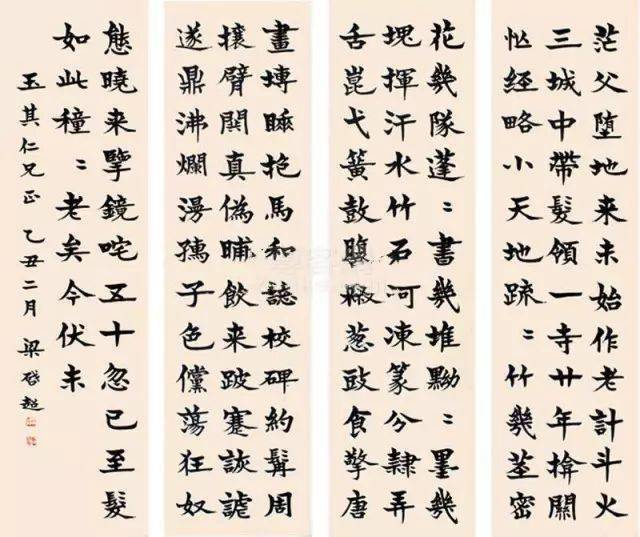 茫父堕地来未始作老計斗火
三城中帶髮領一寺廿年揜關
忙經略小天地疏〻竹幾茎密
花幾隊蓬〻書幾堆黝〻墨幾
塊揮汗水竹石呵凍篆分隸弄
舌崑弋簧鼓腹椒葱豉食擎唐
畫摶睡抱馬和誌校碑約髯周
攘臂閧真偽晡飲来跛蹇詼謔
遂鼎沸爛漫孺子色儻蕩狂奴
態曉来擥鏡咤五十忽已至髮
如此種〻老矣今伏未
玉其仁兄正 乙丑二月 梁啓超